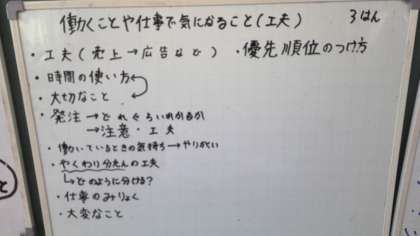 働くことや仕事で気になること(工夫) 3はん
・工夫(売上→広告など) ・優先順位のつけ方
・時間の使い方
・大切なこと
・発注→どれぐらいいれかるか
→注意・工夫
・働いているときの気持ち→やりがい
・やくわり分たんの工夫
↳どのように分ける?
・仕事のみりょく
・大変なこと